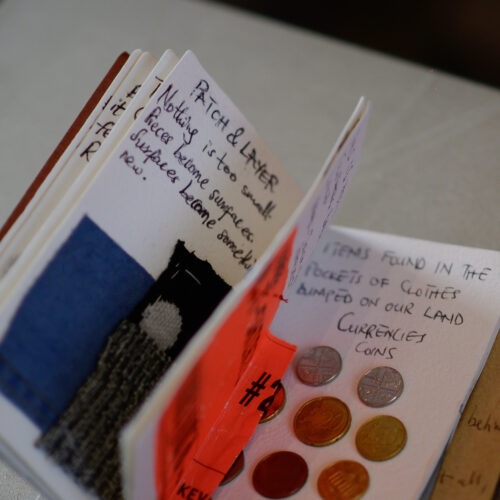 PATCH & LAYER
Nothing is too small.
Pieces become surfaces.
Surfaces become
new.
ITEMS FOUND IN THE
POCKETS OF CLOTHES
DUMPED ON OUR LAND
CURRENCIES
COINS
#2
KEY